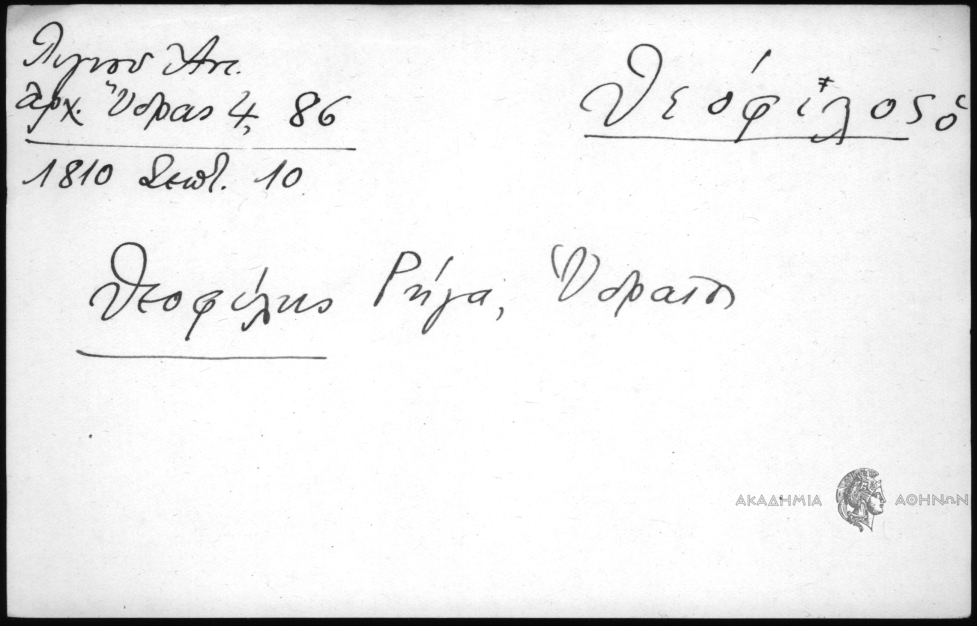 Λιγνού Ἀντ.
Ἀρχ. Ὕδρας 4, 86
1810 Σεπτ. 10
Θεόφιλος ὁ
Θεοφίλης Ρήγα, Ὑδραῖος
ΑΚΑΔΗΜΙΑ ΑΘΗΝΩΝ